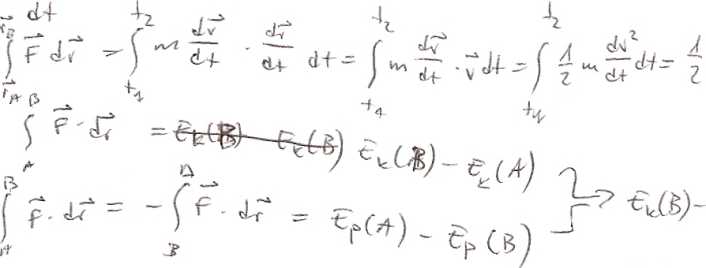 dt
∫_{r⃗_A}^{r⃗_B} F⃗ dr⃗ = ∫_{t_1}^{t_2} m dv⃗/dt · dr⃗/dt dt = ∫_{t_1}^{t_2} m dv⃗/dt · v⃗ dt = ∫_{t_1}^{t_2} 1/2 m dv²/dt dt = 1/2
∫_A^B F⃗ · dr⃗ = E_k(B) E_k(B) E_k(B) − E_k(A)
∫_A^B F⃗ · dr⃗ = − ∫_B^A F⃗ · dr⃗ = E_p(A) − E_p(B) ⇒ E_k(B) −